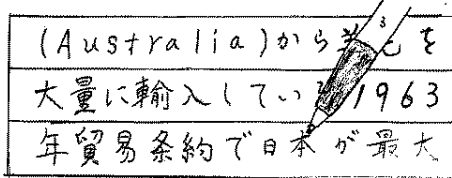 (Australia)から羊毛を
大量に輸入してい 1963
年貿易条約で日本が最大